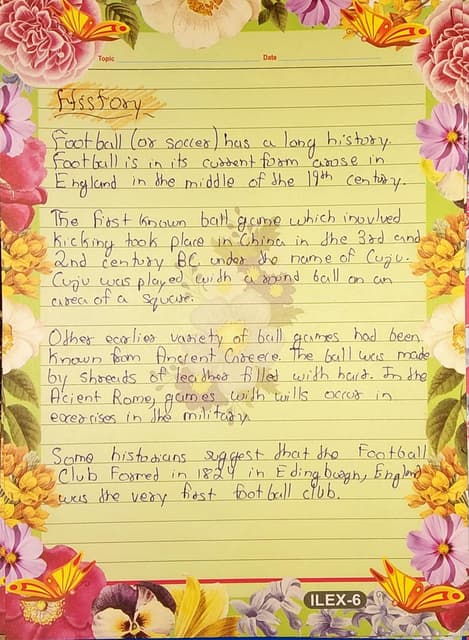 Topic
Date
History
Football (or soccer) has a long history.
Football is in its current form arose in
England in the middle of the 19th century.
The first known ball game which inovlved
kicking took place in China in the 3rd and
2nd century BC under the name of Cuju.
Cuju was played with a round ball on an
area of a square.
Other earlier variety of ball games had been
known from Ancient Greece. The ball was made
by shreeds of leather filled with hair. In the
Acient Rome, games with wills occur in
exercises in the military.
Some historians suggest that the Football
Club Formed in 1824 in Edingburgh, England
was the very first football club.
ILEX-6